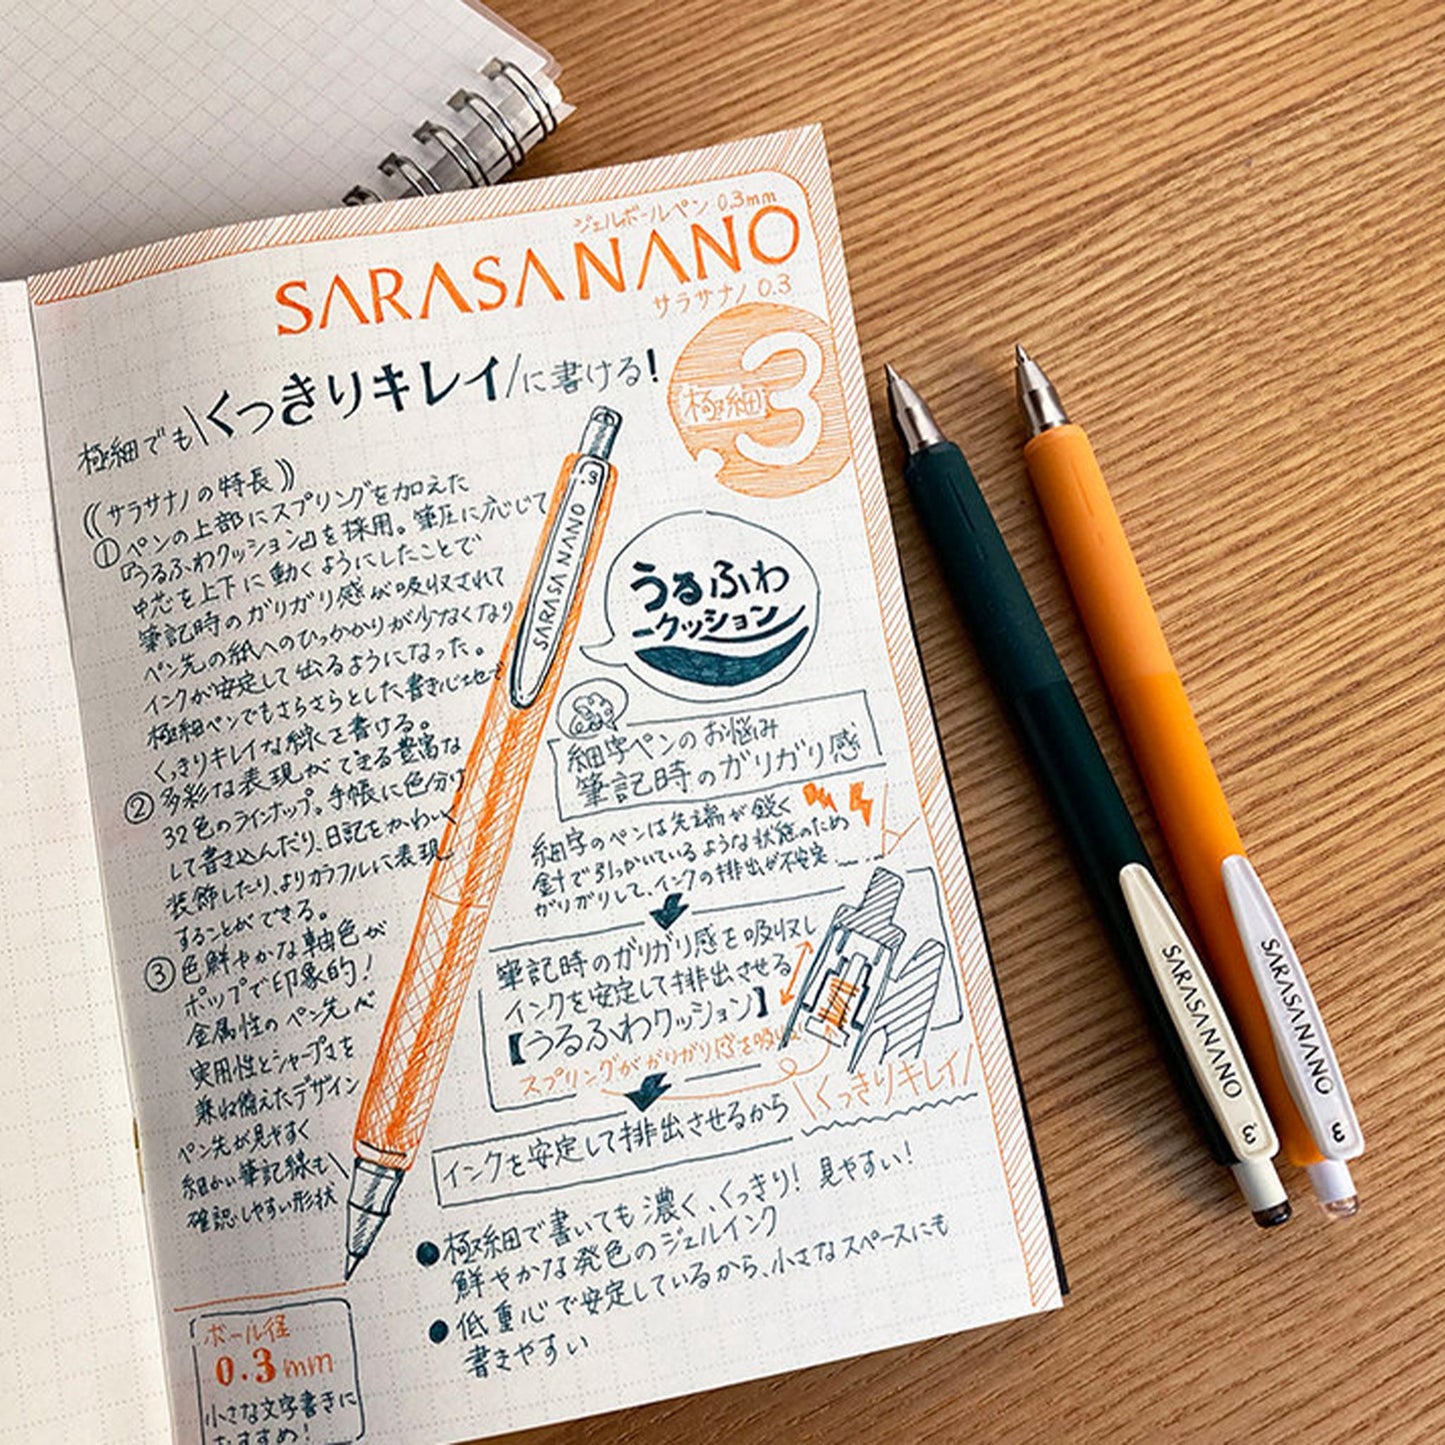 ジェルボールペン 0.3mm
SARASA NANO
サラサナノ 0.3
極細でも\くっきりキレイ/に書ける!
極細 3
((サラサナノの特長))
① ペンの上部にスプリングを加えた
『うるふわクッション』を採用。筆圧に応じて
中芯を上下に動くようにしたことで
筆記時のガリガリ感が吸収されて
ペン先の紙へのひっかかりが少なくなり
インクが安定して出るようになった。
極細ペンでもさらさらとした書き心地で
くっきりキレイな線を書ける。
② 多彩な表現ができる豊富な
32色のラインナップ。手帳に色分け
して書き込んだり、日記をかわいく
装飾したり、よりカラフルに表現
することができる。
③ 色鮮やかな軸色が
ポップで印象的!
金属性のペン先で
実用性とシャープさを
兼ね備えたデザイン
ペン先が見やすく
細かい筆記線も
確認しやすい形状
.3
SARASA NANO
うるふわ
クッション
細字ペンのお悩み
筆記時のガリガリ感
細字のペンは先端が鋭く
針で引っかいているような状態のため
ガリガリして、インクの排出が不安定……
筆記時のガリガリ感を吸収し
インクを安定して排出させる
【うるふわクッション】
スプリングがガリガリ感を吸収
インクを安定して排出させるから
\くっきりキレイ/
●極細で書いても濃く、くっきり!見やすい!
鮮やかな発色のジェルインク
●低重心で安定しているから、小さなスペースにも
書きやすい
ボール径
0.3mm
小さな文字書きに
おすすめ!
SARASA NANO
.3
SARASA NANO
.3